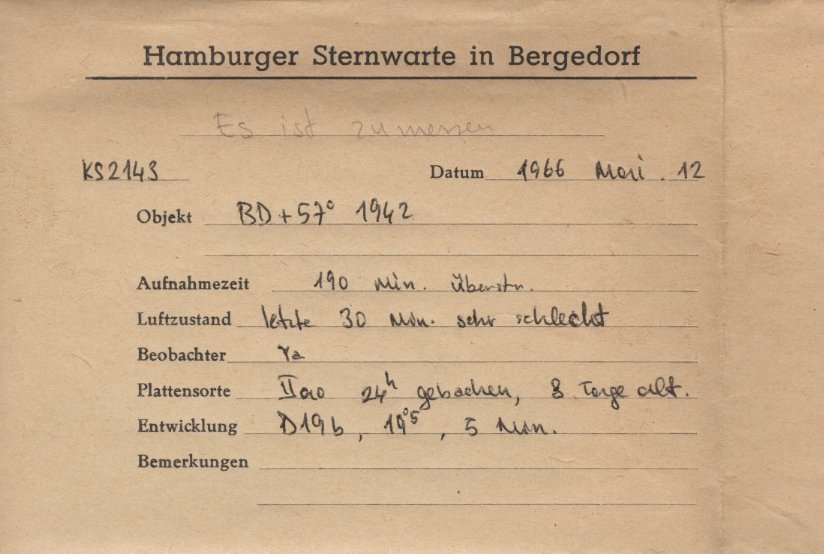 Hamburger Sternwarte in Bergedorf
Es ist zu messen
KS2143 Datum 1966 Mai. 12
Objekt BD+57° 1942
Aufnahmezeit 190 Min. Überstr.
Luftzustand letzte 30 Min. sehr schlecht
Beobachter
Plattensorte IIao 24h gebacken, 8 Tage alt.
Entwicklung D19b, 19°5, 5 Min.
Bemerkungen